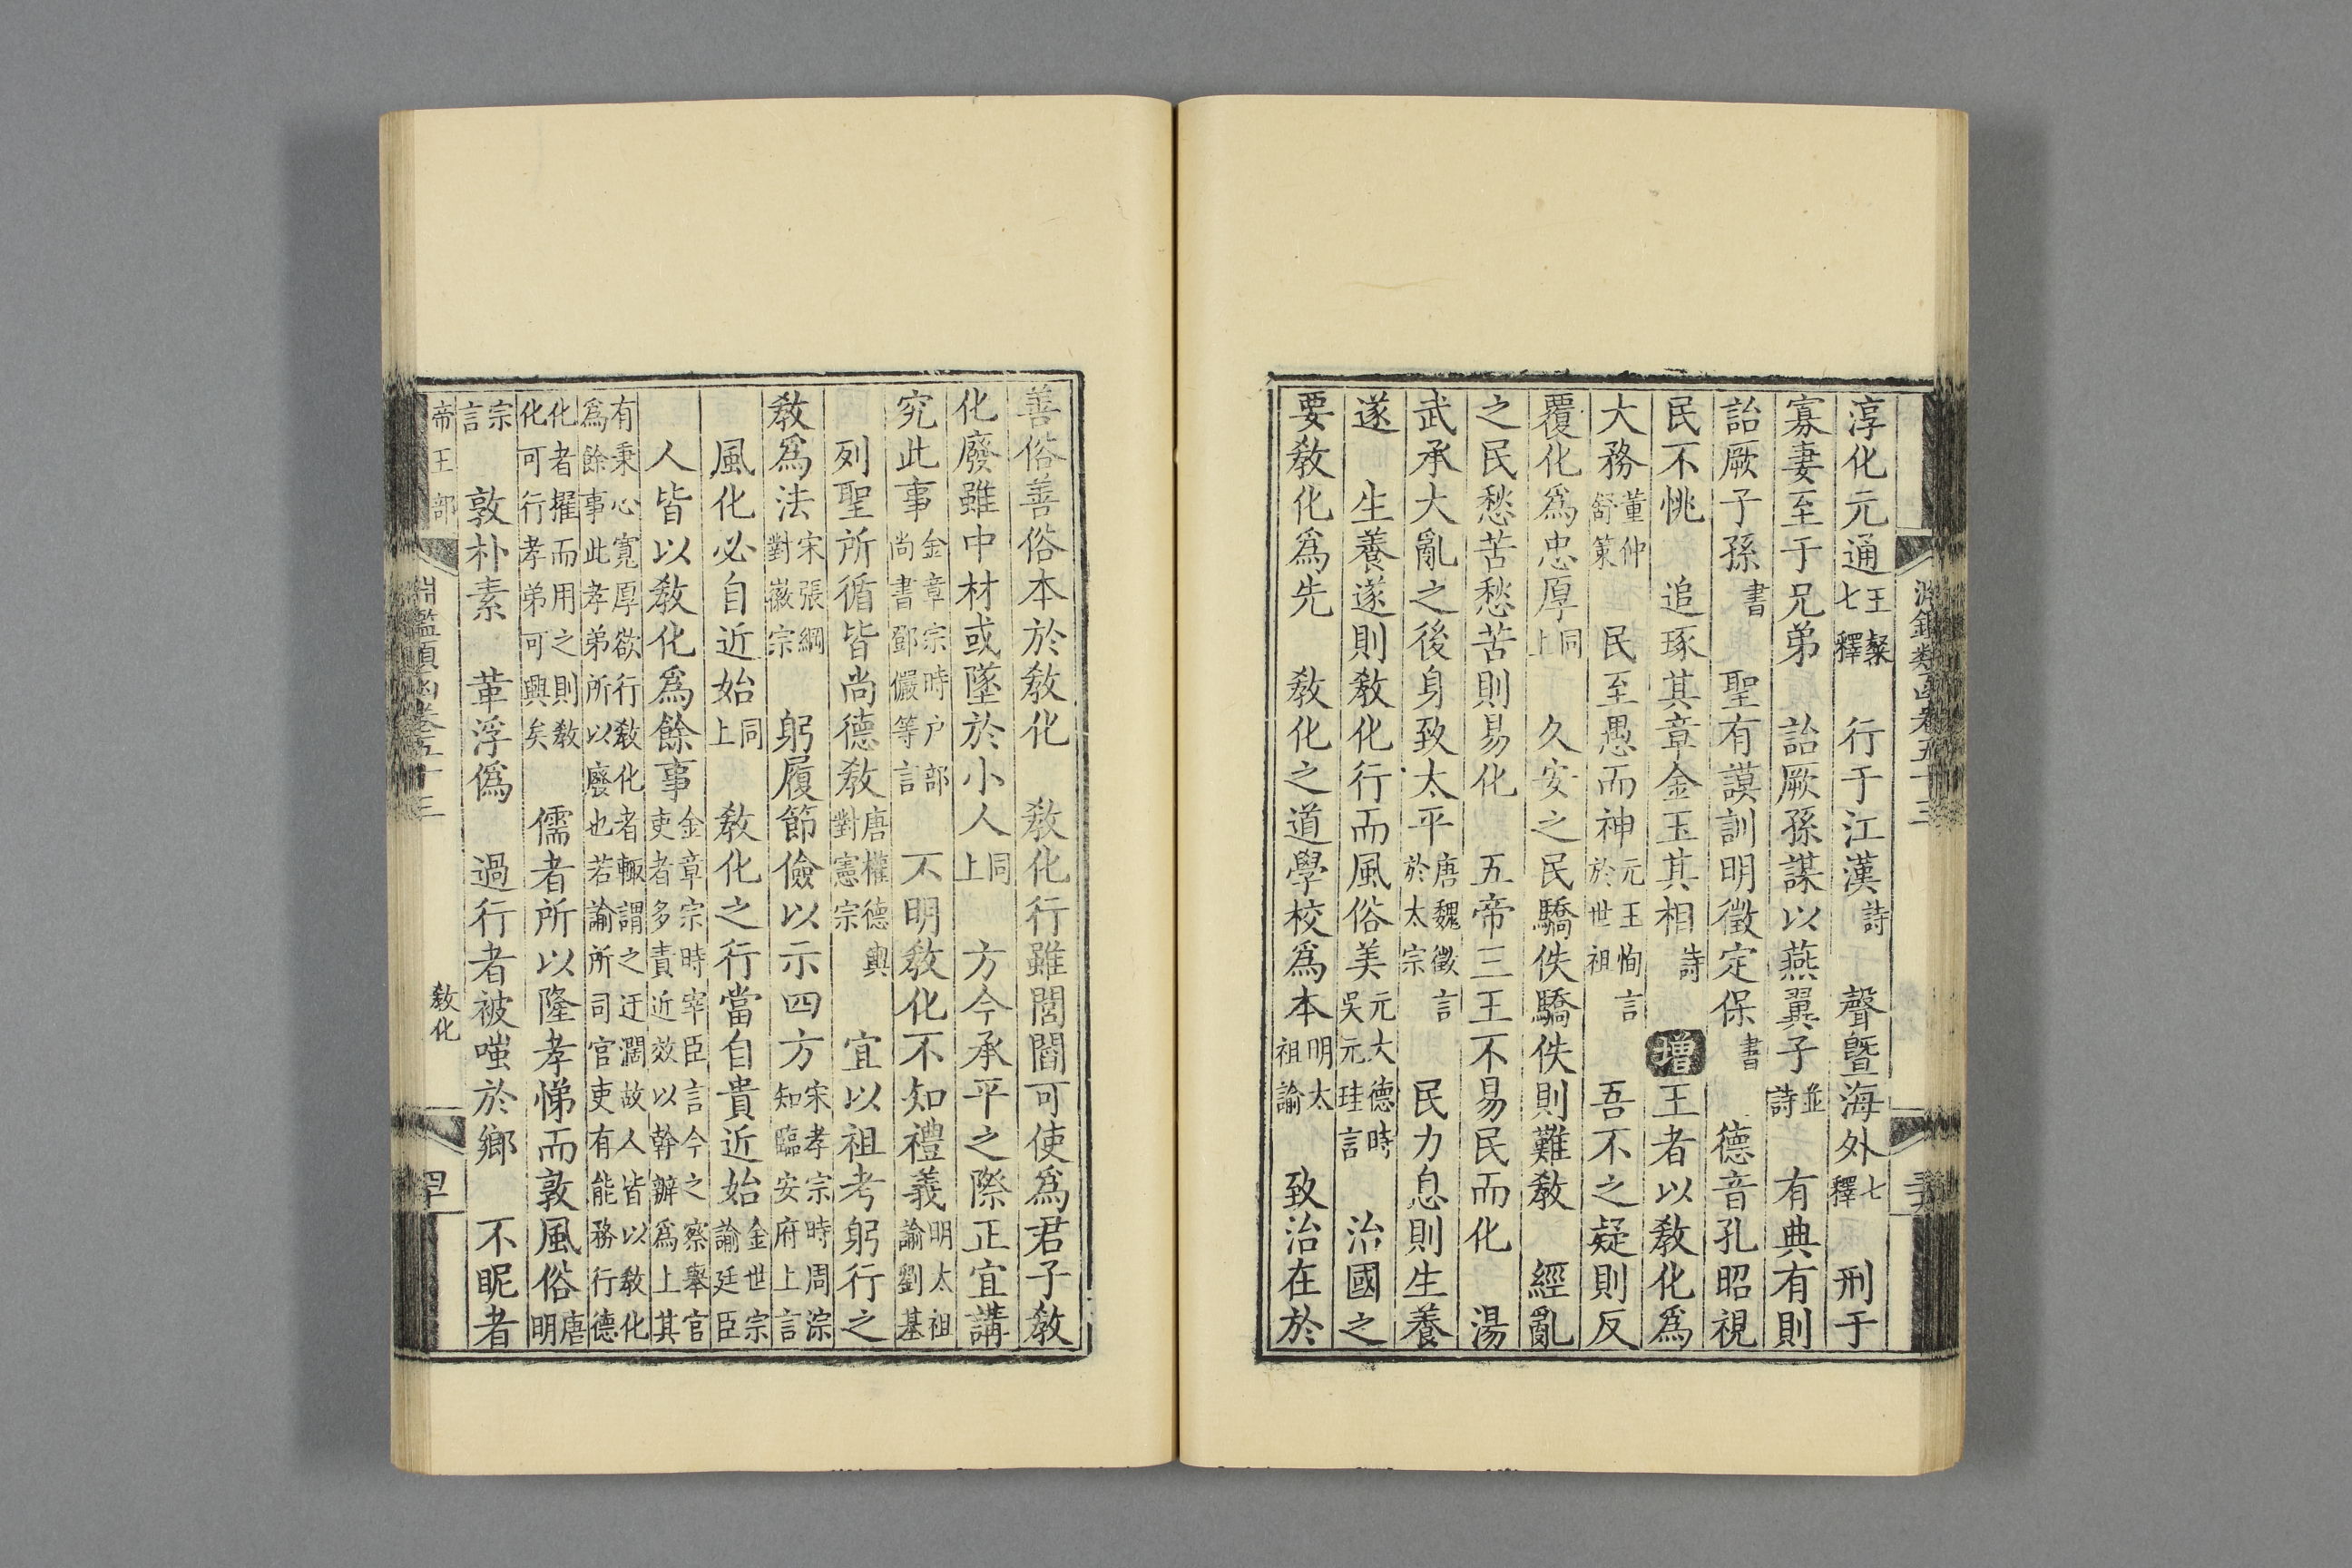 淵鑑類函卷五十三
淳化元通王粲七釋 行于江漢詩 聲曁海外七釋 刑于
寡妻至于兄弟 詒厥孫謀以燕翼子並詩 有典有則
詒厥子孫書 聖有謨訓明徵定保書 德音孔昭視
民不恌 追琢其章金玉其相詩 增 王者以敎化爲
大務董仲舒策 民至愚而神元王恂言於世祖 吾不之疑則反
覆化爲忠厚同上 久安之民驕佚驕佚則難敎 經亂
之民愁苦愁苦則易化 五帝三王不易民而化 湯
武承大亂之後身致太平唐魏徵言於太宗 民力息則生養
遂 生養遂則敎化行而風俗美元大德時吳元珪言 治國之
要敎化爲先 敎化之道學校爲本明太祖諭 致治在於
善俗善俗本於敎化 敎化行雖閭閻可使爲君子敎
化廢雖中材或墜於小人同上 方今承平之際正宜講
究此事金章宗時户部尚書鄧儼等言 不明敎化不知禮義明太祖諭劉基
列聖所循皆尚德敎唐權德輿對憲宗 宜以祖考躬行之
敎爲法宋張綱對徽宗 躬履節儉以示四方宋孝宗時周淙知臨安府上言
風化必自近始同上 敎化之行當自貴近始金世宗諭廷臣
人皆以敎化爲餘事金章宗時宰臣言今之察舉官吏者多責近效以幹辦爲上其
有秉心寬厚欲行敎化者輙謂之迂濶故人皆以敎化爲餘事此孝弟所以廢也若諭所司官吏有能務行德
化者擢而用之則敎化可行孝弟可興矣 儒者所以隆孝悌而敦風俗唐明
宗言 敦朴素 革浮僞 過行者被嗤於鄉 不昵者
帝王部 淵鑑類函卷五十三 敎化